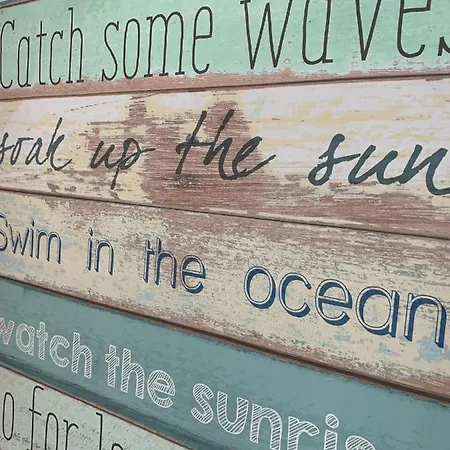 Catch some waves
soak up the sun
Swim in the ocean
watch the sunris
o for lo